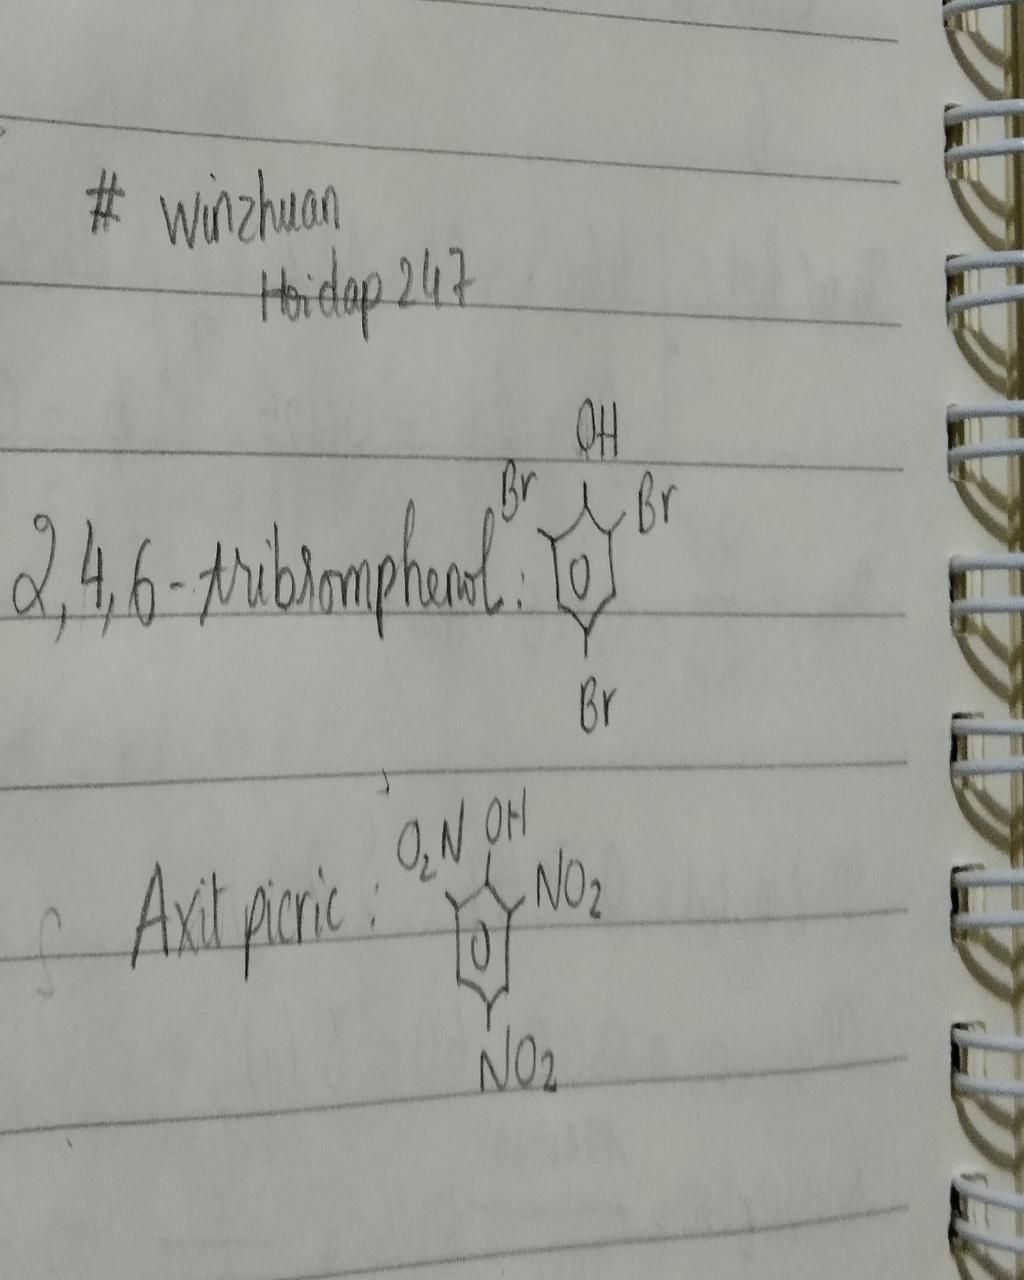 # Winzhuan
Hoidap 247
OH
Br Br
2,4,6-tribromphenol:
Br
O₂N OH
NO₂
Axit picric:
NO₂